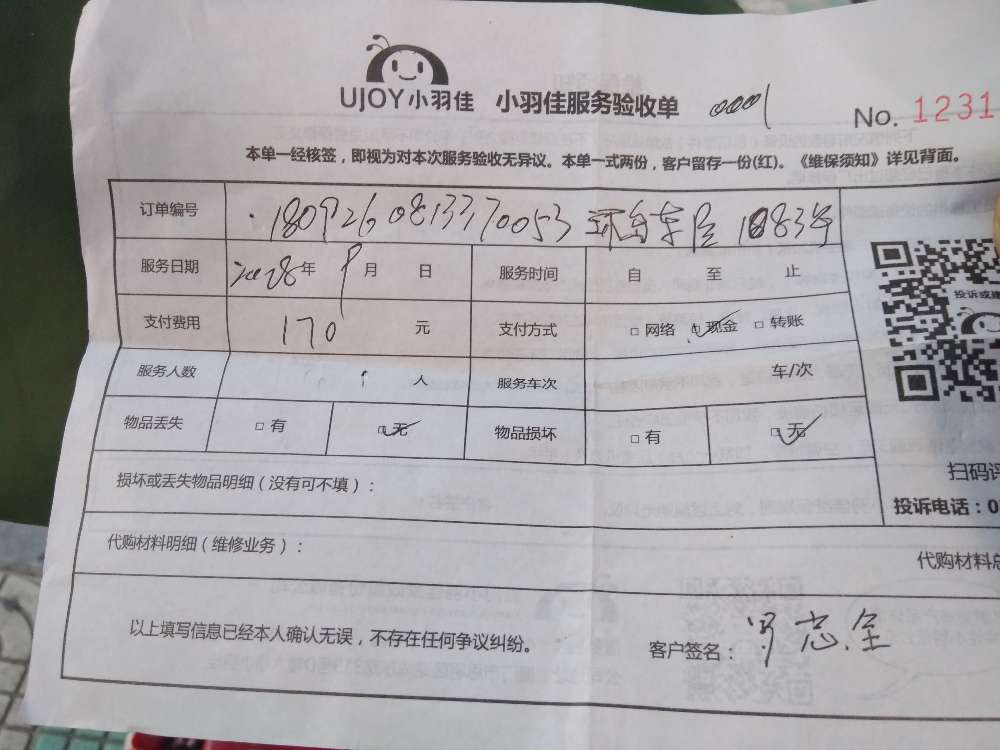 UJOY小羽佳 小羽佳服务验收单 0001 No. 1231
本单一经核签，即视为对本次服务验收无异议。本单一式两份，客户留存一份(红)。《维保须知》详见背面。
订单编号 1809260813370053
服务日期 年 9 月 日 服务时间 自 至 止
支付费用 170 元 支付方式 □ 网络 □ 现金 □ 转账
服务人数 1 人 服务车次 车/次
物品丢失 □ 有 □ 无 物品损坏 □ 有 □ 无
投诉或
扫码评
损坏或丢失物品明细（没有可不填）：
投诉电话：0
代购材料明细（维修业务）：
代购材料总
以上填写信息已经本人确认无误，不存在任何争议纠纷。 客户签名：